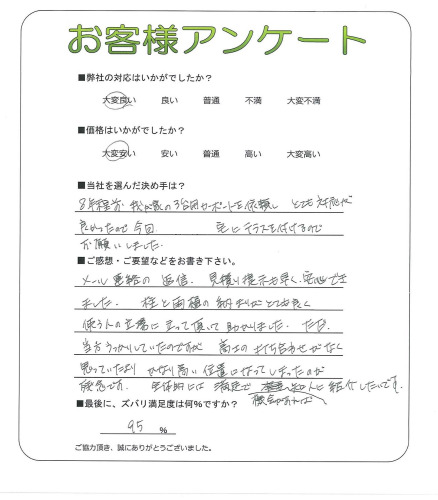 お客様アンケート
■弊社の対応はいかがでしたか？
大変良い 良い 普通 不満 大変不満
■価格はいかがでしたか？
大変安い 安い 普通 高い 大変高い
■当社を選んだ決め手は？
8年程前 我が家の3台用カーポートを依頼し とても対応が
良かったので今回 宅にテラスを付けるので
お願いしました.
■ご感想・ご要望などをお書き下さい。
メール連絡の返信. 見積り提示も早く、安心でき
ました. 柱と雨樋の納まりがとても良く
使う人の立場に立って頂いて助かりました. ただ.
当方うっかりしていたのですが 高さの打ち合わせがなく
思っていたより かなり高い位置になってしまったのが
残念です. 全体的には満足で 知人に紹介したいです.
機会があれば、
■最後に、ズバリ満足度は何%ですか？
95 %
ご協力頂き、誠にありがとうございました。